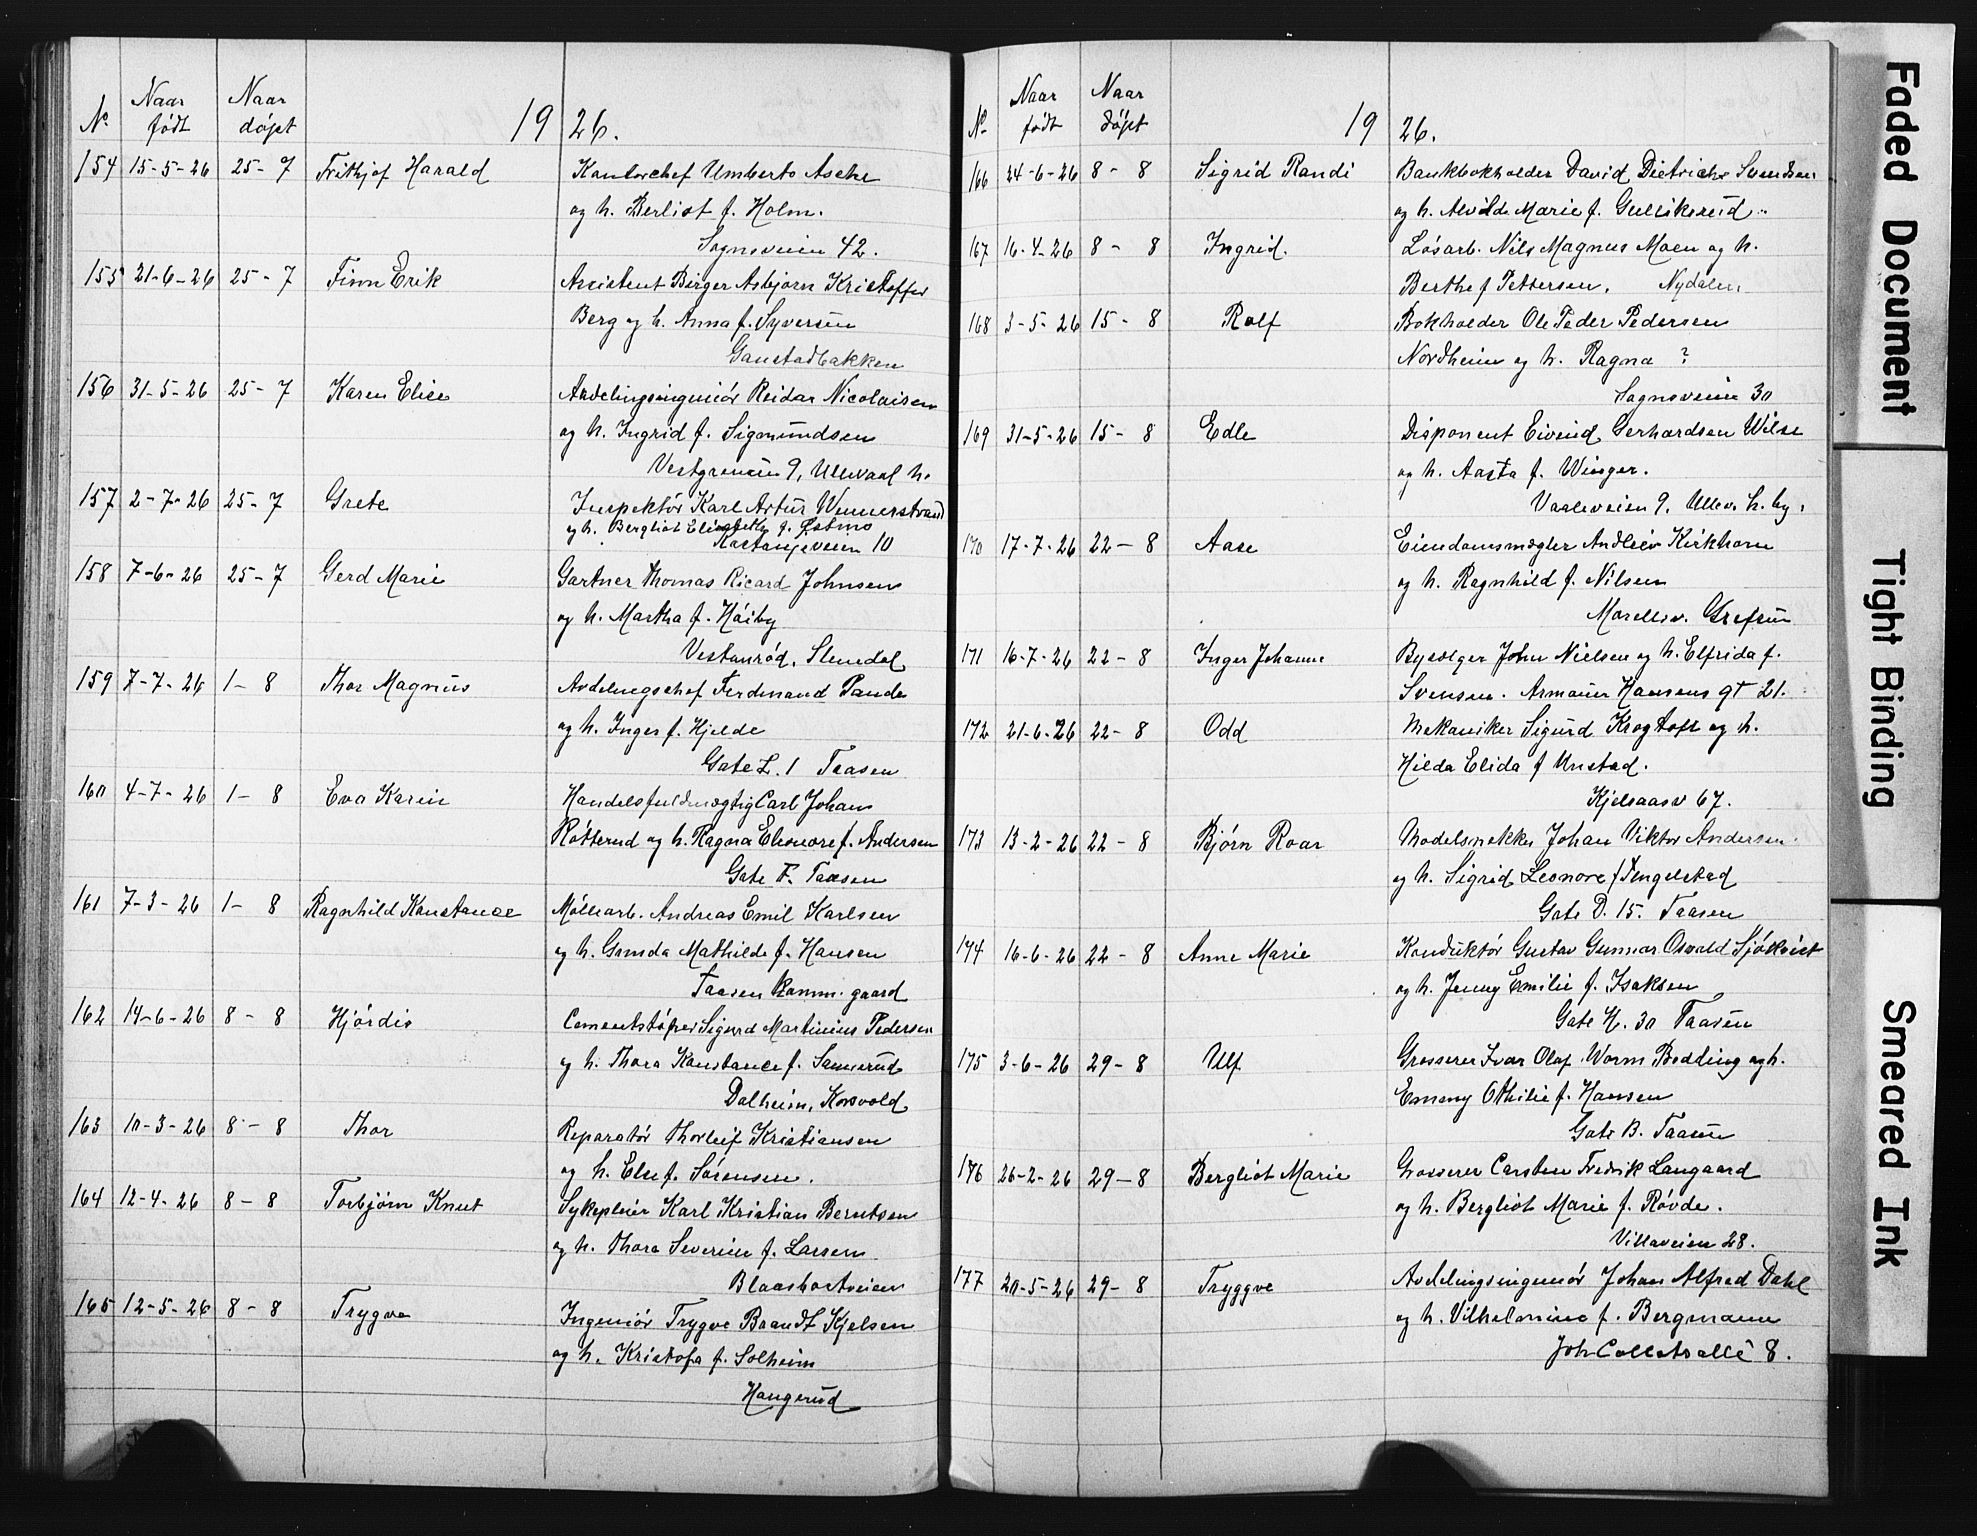 No Naar født Naar døpt 1926.
154 15-5-26 25-7 Frithjof Harald Kontorchef Umberto Asche
og h. Berliot f. Holm.
Sognsveien 42.
155 21-6-26 25-7 Finn Erik Assistent Birger Asbjørn Kristoffer
Berg og h. Anna f. Syversen
Gaustadbakken
156 31-5-26 25-7 Karen Elise Avdelingsingeniør Reidar Nicolaisen
og h. Ingrid f. Sigmundsen
Vestgrensen 9, Ullevaal h.
157 2-7-26 25-7 Grete Inspektør Karl Artur Wennerstrand
og h. Bergliot Elisabeth f. Østmo
Kastanjeveien 10
158 7-6-26 25-7 Gerd Marie Gartner Thomas Ricard Johnsen
og h. Martha f. Høiby
Vestanrød, Slemdal
159 7-7-26 1-8 Thor Magnus Avdelingschef Ferdinand Pande
og h. Inger f. Hjelde
Gate L. 1 Taasen
160 4-7-26 1-8 Eva Karin Handelsfuldmægtig Carl Johan
Røtterud og h. Ragna Elenore f. Andersen
Gate F. Taasen
161 7-3-26 1-8 Ragnhild Konstanse Møllearb. Andreas Emil Karlsen
og h. Gunda Mathilde f. Hansen
Taasen komm. gaard
162 14-6-26 8-8 Hjørdis Cementstøper Sigurd Martinius Pedersen
og h. Thora Konstance f. Sannerud
Dalheim, Korsvold
163 10-3-26 8-8 Thor Reparatør Thorleif Kristiansen
og h. Else f. Sørensen.
164 12-4-26 8-8 Torbjørn Knut Sykepleier Karl Kristian Berntsen
og h. Thora Severine f. Larsen
Blaasbortveien
165 12-5-26 8-8 Trygve Ingeniør Trygve Brandt Kjelsen
og h. Kristofa f. Solheim
Haugerud
No Naar født Naar døpt 1926.
166 24-6-26 8-8 Sigrid Randi Bankbokholder David Dietrichs Svendsen
og h. Alvilde Marie f. Gulliksrud.
167 16-4-26 8-8 Ingrid. Løsarb. Nils Magnus Moen og h.
Berthe f Pettersen, Nydalen.
168 3-5-26 15-8 Rolf Bokholder Ole Peder Pedersen
Nordheim og h. Ragna ?
Sognsveien 30
169 31-5-26 15-8 Edle Disponent Eivind Gerhardsen Wilse
og h. Aasta f. Winger.
Vaaleveien 9. Ullev. h. by.
170 17-7-26 22-8 Aase Eiendomsmægler Andreas Kirkhorn
og h. Ragnhild f. Nilsen
Morelliv. Grefsen
171 16-7-26 22-8 Inger Johanne Bysælger John Nielsen og h. Elfrida f.
Svensen. Armauer Hansens gt 21.
172 21-6-26 22-8 Odd Mekaniker Sigurd Krogtoft og h.
Hilda Elida f Unstad.
Kjelsaasv 67.
173 13-2-26 22-8 Bjørn Roar Modelsnekker Johan Viktor Andersen
og h. Sigrid Leonore f Tengelstad
Gate D. 15. Taasen
174 16-6-26 22-8 Anne Marie Konduktør Gustav Gunnar Osvald Sjøkvist
og h. Jenny Emilie f. Isaksen
Gate H. 30 Taasen
175 3-6-26 29-8 Ulf Grosserer Ivar Olaf Worm Bødding og h.
Emmy Othilie f. Hansen
Gate B. Taasen
176 26-2-26 29-8 Bergliot Marie Grosserer Carsten Fredrik Langaard
og h. Bergliot Marie f. Røvde.
Villaveien 28.
177 20-5-26 29-8 Tryggve Avdelingsingeniør Johan Alfred Dahl
og h. Vilhelmine f. Bergmann
Joh Colletsallé 8.
Faded Document
Tight Binding
Smeared Ink